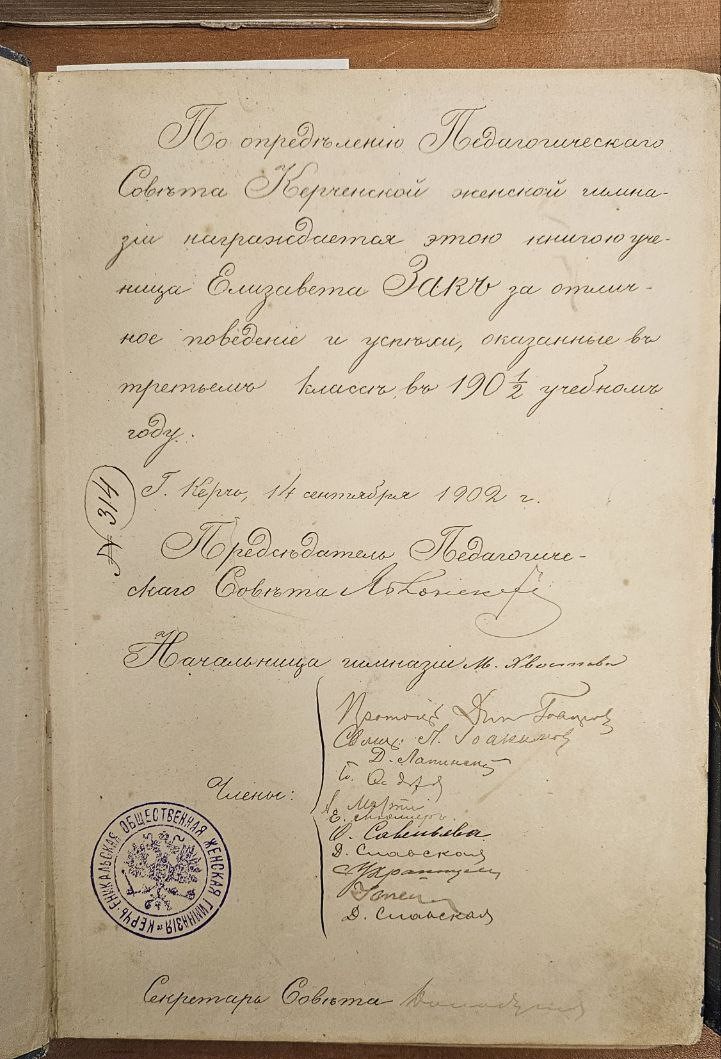 По опредѣленію Педагогическаго
Совѣта Керченской женской гимна-
зіи награждается этою книгою уче-
ница Елизавета Закъ за отлич-
ное поведеніе и успѣхи, оказанные въ
третьемъ классѣ въ 190 1/2 учебномъ
году.
№ 314
Г. Керчь, 14 сентября 1902 г.
Предсѣдатель Педагогиче-
скаго Совѣта
Начальница гимназіи М. Хвостова
Члены:
Д. Лапинскій
Е.
О. Савельева
Д. Славская
Д. Славская
КЕРЧЬ-ЕНИКАЛЬСКАЯ ОБЩЕСТВЕННАЯ ЖЕНСКАЯ ГИМНАЗІЯ
Секретарь Совѣта